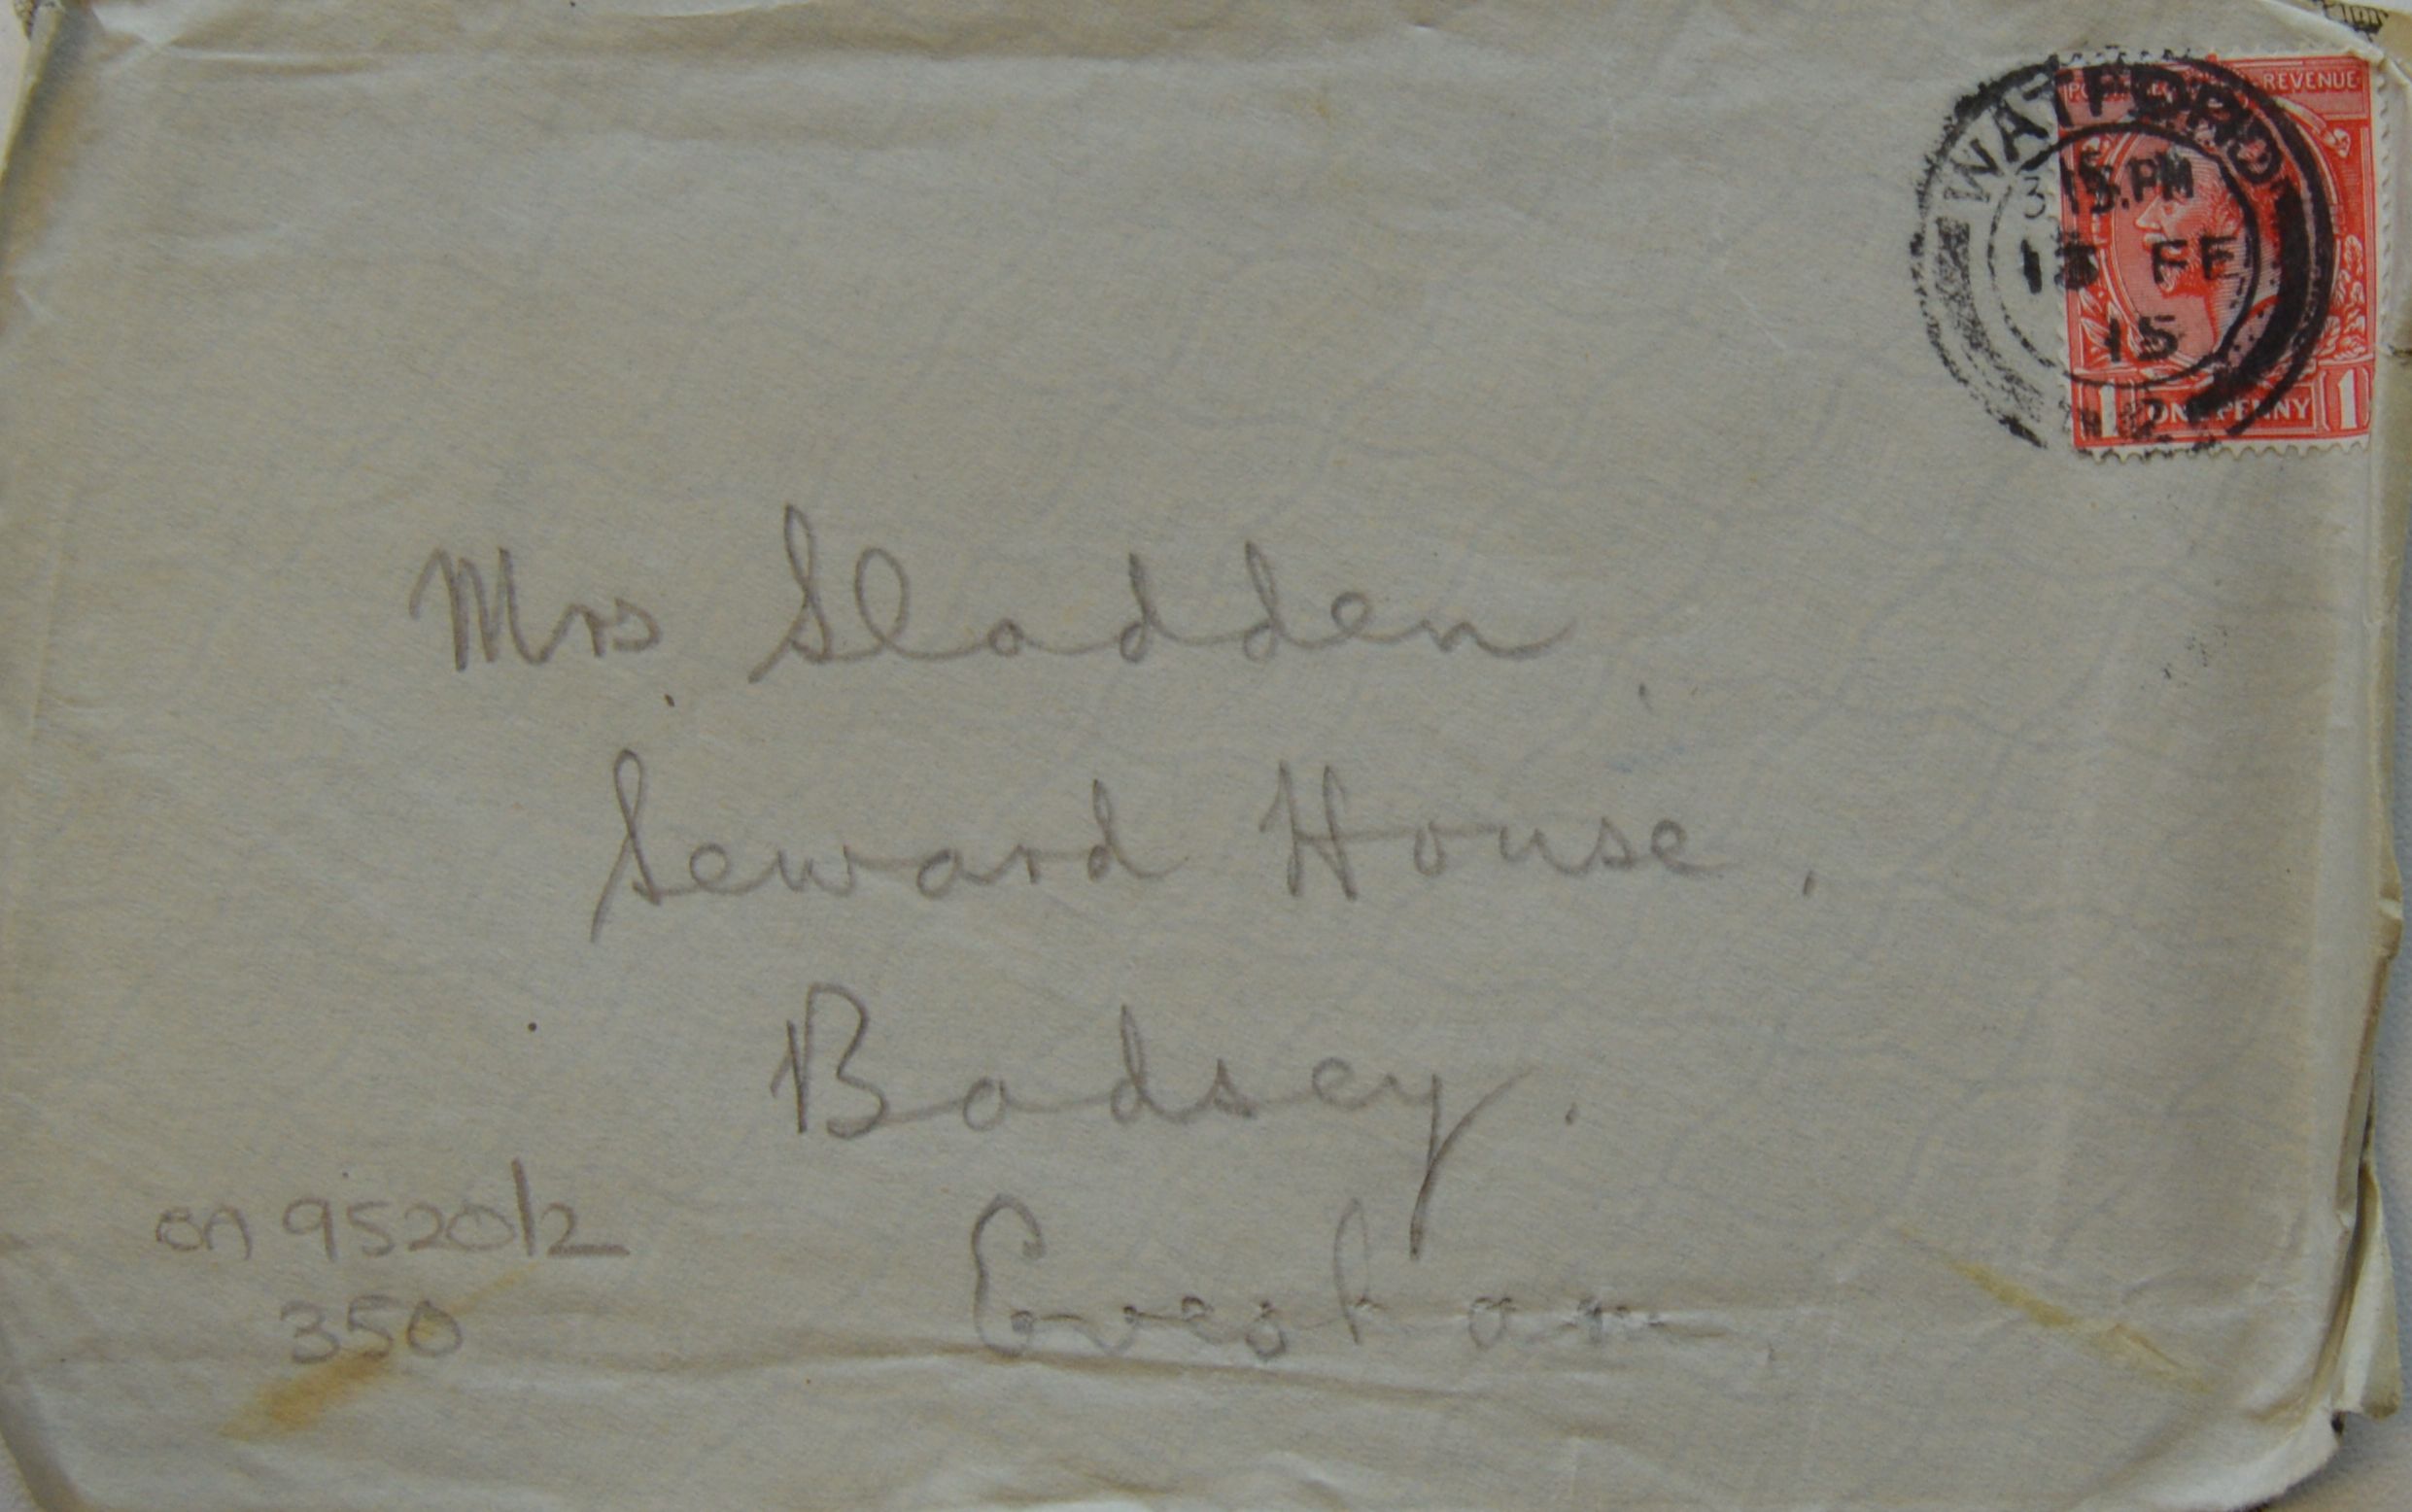 REVENUE
WATFORD
3 15.PM
FE
15
1 ONE PENNY 1
Mrs Sladden
Seward House,
Badsey.
Evesham,
BA 9520/2
350